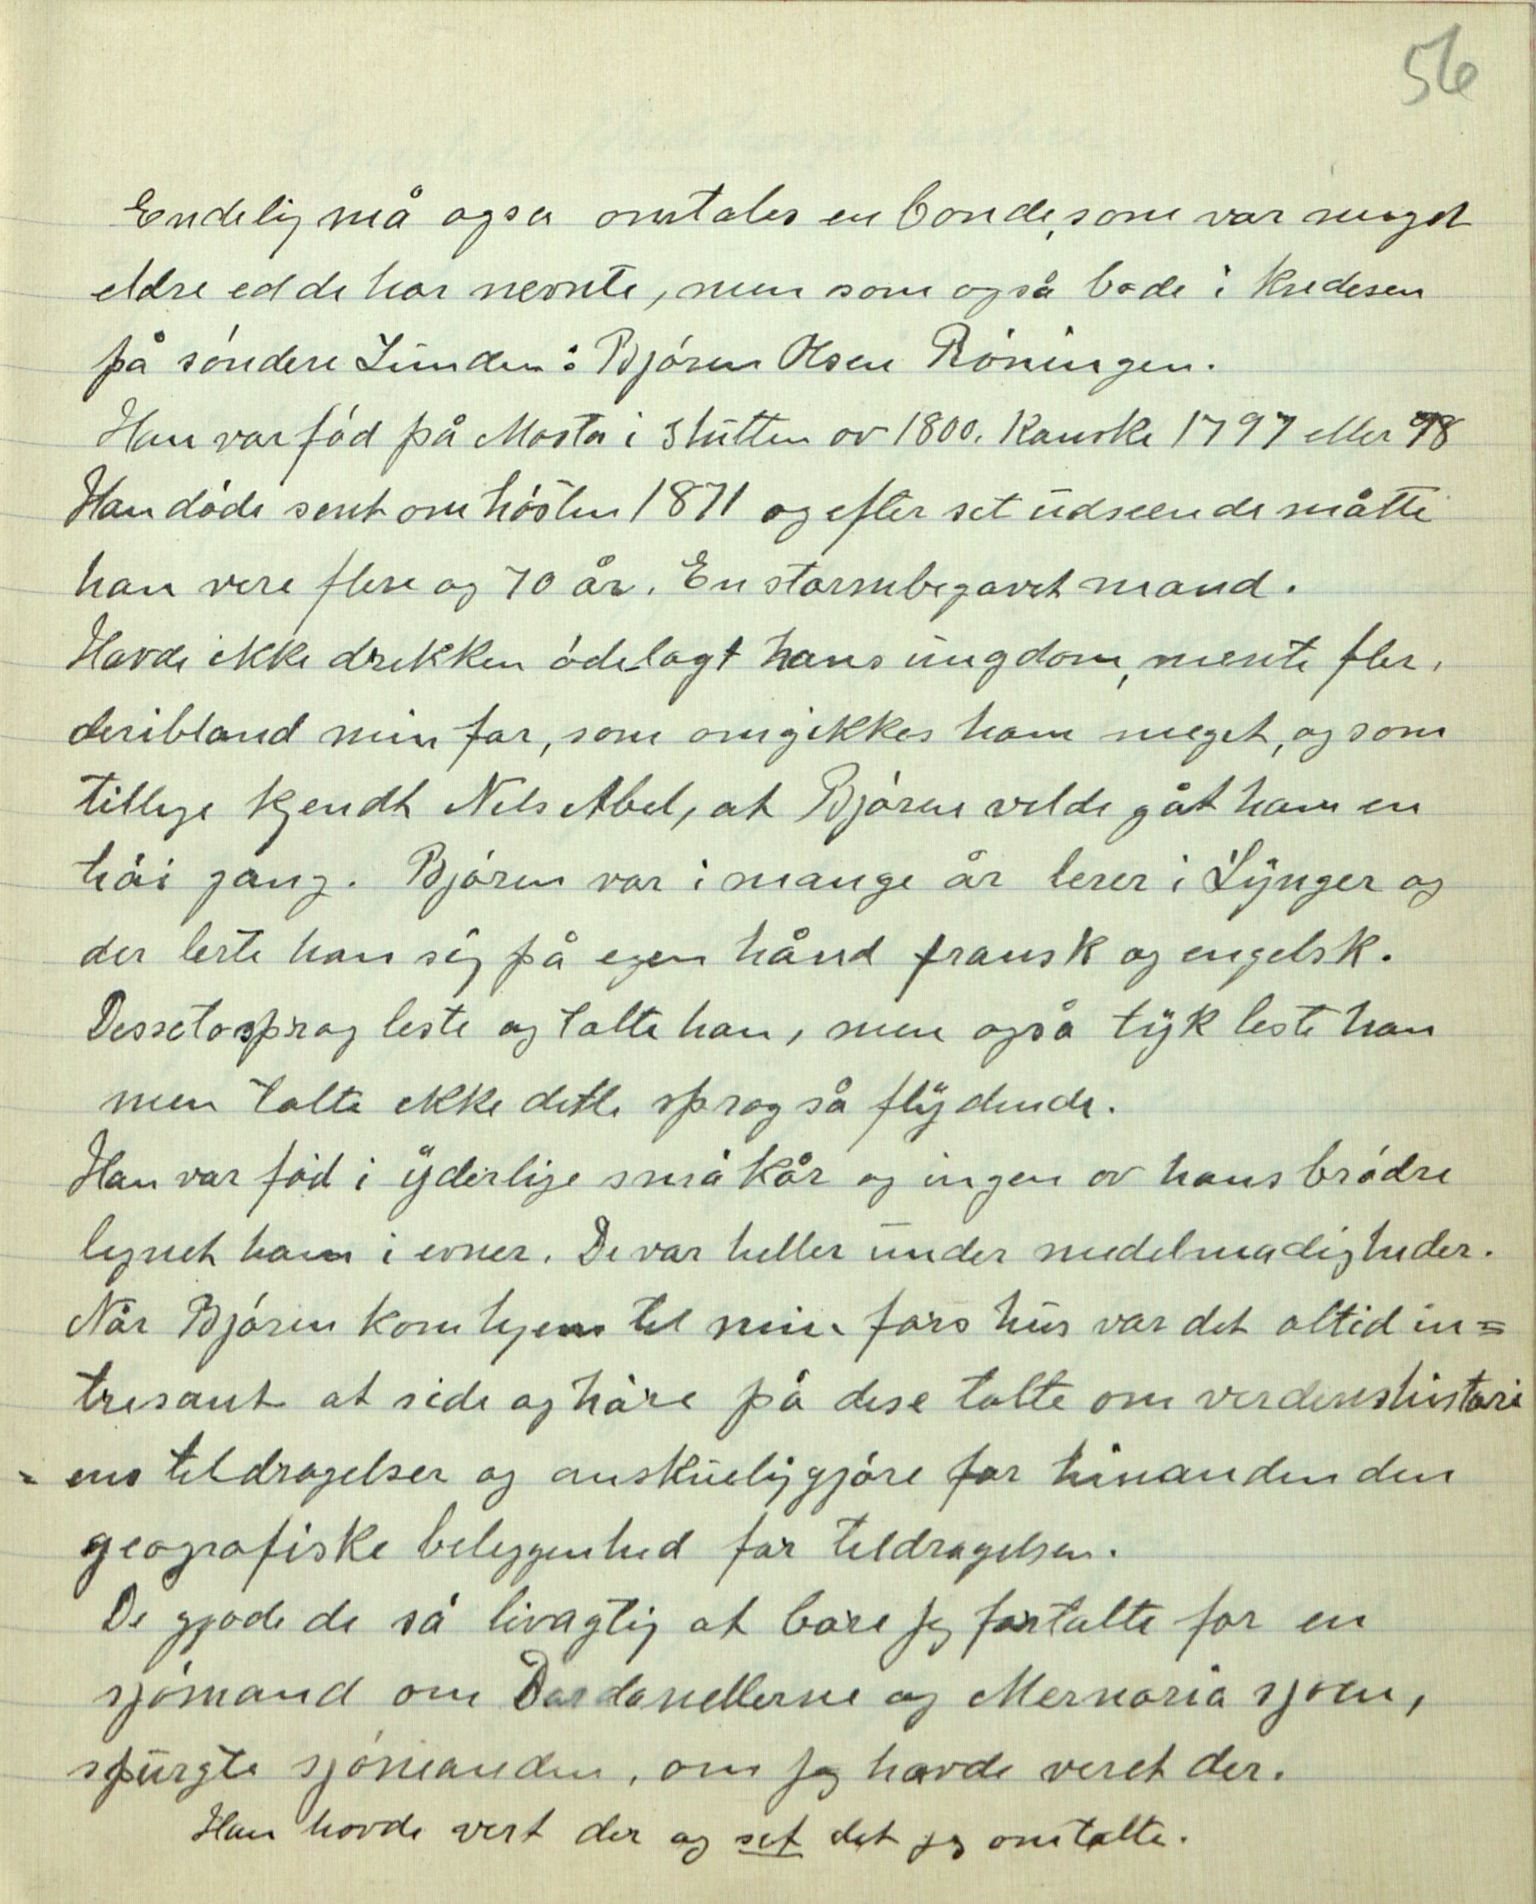 56
Endelig må ogsa omtales en bonde, som var meget
eldre ed de har nevnte, men som også bode i kredesen
på söndere Lunden: Björen Olsen Röningen.
Han var föd på Mosta i Slutten av 1800. Kanske 1797 eller 98
Han döde sent om hösten 1871 og efter set udseende måtte
han vere flere og 70 år. En stormbegavet mand.
Havde ikke drekken ödelagt hans ungdom, mente fler,
deribland min far, som omgikkes ham meget, og som
tillige kjendt Nels Abel, at Björen velde gåt ham en
höi gang. Björen var i mange år lerer i Lynger og
der lerte han sig på egen hånd fransk og engelsk.
Desseto sprog leste og talte han, men også tyk leste han
men talte ikke dette sprog så flydende.
Han var föd i yderlige små kår og ingen av hans brödre
lignet ham i evner. De var heller under medelmadigheder.
Når Björen kom hjem til min fars hus var det altid in=
tresant at side og höre på dese talte om verdenshistori
= ens teldragelser og anskueliggjöre for hinanden den
geografiske beleggenhed for teldragelsen.
De gjode de så livagtig at bare jeg fortalte for en
sjömand om Dardanellerne og Mermaria sjoen,
spurgte sjömanden, om jeg havde veret der.
Han hovde vert der og set det jeg omtalte.